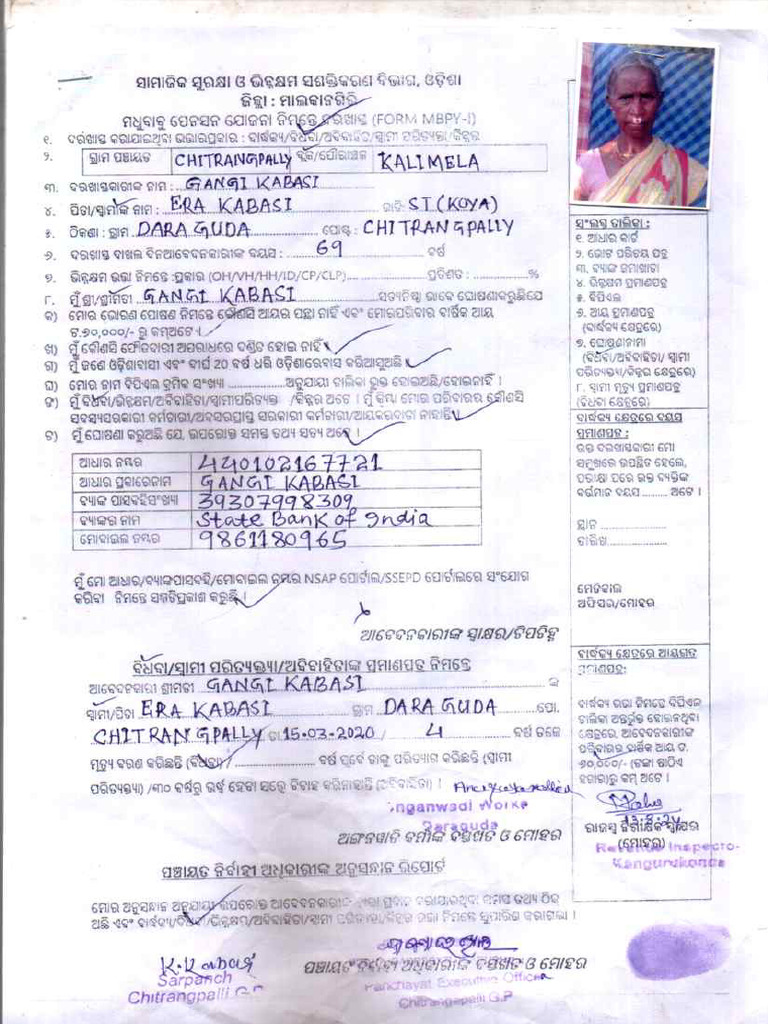 ସାମାଜିକ ସୁରକ୍ଷା ଓ ଭିନ୍ନକ୍ଷମ ସଶକ୍ତିକରଣ ବିଭାଗ, ଓଡ଼ିଶା
ଜିଲ୍ଲା : ମାଲକାନଗିରି
ମଧୁବାବୁ ପେନସନ ଯୋଜନା ନିମନ୍ତେ ଦରଖାସ୍ତ (FORM MBPY-I)
୧. ଦରଖାସ୍ତ କରାଯାଇଥିବା ଭତ୍ତାରପ୍ରକାର : ବାର୍ଦ୍ଧକ୍ୟ/ବିଧବା/ଅବିବାହିତା/ସ୍ୱାମୀ ପରିତ୍ୟକ୍ତା/କିନ୍ନର
୨. ଗ୍ରାମ ପଞ୍ଚାୟତ CHITRANGPALLY ବ୍ଲକ/ପୌରାଞ୍ଚଳ KALIMELA
୩. ଦରଖାସ୍ତକାରୀଙ୍କ ନାମ : GANGI KABASI
୪. ପିତା/ସ୍ୱାମୀଙ୍କ ନାମ : ERA KABASI ଜାତି: ST (KOYA)
୫. ଠିକଣା : ଗ୍ରାମ DARA GUDA ପୋଷ୍ଟ : CHITRANGPALLY
୬. ଦରଖାସ୍ତ ଦାଖଲ ଦିନଆବେଦନକାରୀଙ୍କ ବୟସ : 69 ବର୍ଷ
୭. ଭିନ୍ନକ୍ଷମ ଭତ୍ତା ନିମନ୍ତେ :ପ୍ରକାର (OH/VH/HH/ID/CP/CLP) ପ୍ରତିଶତ : %
୮. ମୁଁ ଶ୍ରୀ/ଶ୍ରୀମତୀ GANGI KABASI ସତ୍ୟନିଷ୍ଠ ଭାବେ ଘୋଷଣାକରୁଛିଯେ
କ) ମୋର ଭରଣ ପୋଷଣ ନିମନ୍ତେ କୌଣସି ଆୟର ପନ୍ଥା ନାହିଁ ଏବଂ ମୋରପରିବାର ବାର୍ଷିକ ଆୟ
ଟ.୭୦,୦୦୦/- ରୁ କମ୍ଅଟେ ।
ଖ) ମୁଁ କୌଣସି ଫୌଜଦାରୀ ଅପରାଧରେ ଦଣ୍ଡିତ ହୋଇ ନାହିଁ
ଗ) ମୁଁ ଜଣେ ଓଡ଼ିଶାବାସୀ ଏବଂ ଦୀର୍ଘ 20 ବର୍ଷ ଧରି ଓଡ଼ିଶାରେବାସ କରିଆସୁଅଛି
ଘ) ମୋର ନାମ ବିପିଏଲ କ୍ରମିକ ସଂଖ୍ୟା ଅନୁଯାୟୀ ତାଲିକା ଭୁକ୍ତ ହୋଇଅଛି/ହୋଇନାହିଁ ।
ଙ) ମୁଁ ବିଧବା/ଭିନ୍ନକ୍ଷମ/ଅବିବାହିତା/ସ୍ୱାମୀପରିତ୍ୟକ୍ତା /କିନ୍ନର ଅଟେ । ମୁଁ କିମ୍ବା ମୋର ପରିବାରର କୌଣସି
ସଦସ୍ୟସରକାରୀ କର୍ମଚାରୀ/ଅବସରପ୍ରାପ୍ତ ସରକାରୀ କର୍ମଚାରୀ/ଆୟକରଦାତା ନାହାନ୍ତି
ଚ) ମୁଁ ଘୋଷଣା କରୁଅଛି ଯେ, ଉପରୋକ୍ତ ସମସ୍ତ ତଥ୍ୟ ସତ୍ୟ ଅଟେ ।
ଆଧାର ନମ୍ବର 440102167721
ଆଧାର ପ୍ରକାରେନାମ GANGI KABASI
ବ୍ୟାଙ୍କ ପାସବହିସଂଖ୍ୟା 39307998309
ବ୍ୟାଙ୍କର ନାମ State Bank of India
ମୋବାଇଲ ନମ୍ବର 9861180965
ମୁଁ ମୋ ଆଧାର/ବ୍ୟାଙ୍କପାସବହି/ମୋବାଇଲ ନମ୍ବର NSAP ପୋର୍ଟାଲ/SSEPD ପୋର୍ଟାଲରେ ସଂଯୋଗ
କରିବା ନିମନ୍ତେ ସମ୍ମତିପ୍ରକାଶ କରୁଛି ।
ଆବେଦନକାରୀଙ୍କ ସ୍ୱାକ୍ଷର/ଟିପଚିହ୍ନ
ବିଧବା/ସ୍ୱାମୀ ପରିତ୍ୟକ୍ତା/ଅବିବାହିତାଙ୍କ ପ୍ରମାଣପତ୍ର ନିମନ୍ତେ
ଆବେଦନକାରୀ ଶ୍ରୀମତୀ GANGI KABASI
ସ୍ୱାମୀ/ପିତା ERA KABASI ଗ୍ରାମ DARA GUDA ପୋ.
CHITRANGPALLY ତା 15-03-2020 / 4 ବର୍ଷ ତଳେ
ମୃତ୍ୟୁ ବରଣ କରିଛନ୍ତି (ବିଧବା) / ବର୍ଷ ପୂର୍ବେ ତାଙ୍କୁ ପରିତ୍ୟାଗ କରିଛନ୍ତି (ସ୍ୱାମୀ
ପରିତ୍ୟକ୍ତା) /୩୦ ବର୍ଷରୁ ଉର୍ଦ୍ଧ୍ୱ ହେବା ସତ୍ତ୍ୱେ ବିବାହ କରିନାହାନ୍ତି (ଅବିବାହିତା) ।
Anganwadi Worker
Daraguda
ଅଙ୍ଗନୱାଡି କର୍ମୀଙ୍କ ଦସ୍ତଖତ ଓ ମୋହର
ପଞ୍ଚାୟତ ନିର୍ବାହୀ ଅଧିକାରୀଙ୍କ ଅନୁସନ୍ଧାନ ରିପୋର୍ଟ
ମୋର ଅନୁସନ୍ଧାନ ଅନୁଯାୟୀ ଉପରୋକ୍ତ ଆବେଦନକାରୀଙ୍କ ଦ୍ୱାରା ପ୍ରଦାନ କରାଯାଇଥିବା ସମସ୍ତ ତଥ୍ୟ ଠିକ୍
ଅଛି ଏବଂ ବାର୍ଦ୍ଧକ୍ୟ/ବିଧବା/ଭିନ୍ନକ୍ଷମ/ଅବିବାହିତା/ସ୍ୱାମୀ ପରିତ୍ୟକ୍ତା/କିନ୍ନର ଭତ୍ତା ନିମନ୍ତେ ସୁପାରିଶ କରାଗଲା ।
K. Kabasi
Sarpanch
Chitrangpalli G.P
ପଞ୍ଚାୟତ ନିର୍ବାହୀ ଅଧିକାରୀଙ୍କ ଦସ୍ତଖତ ଓ ମୋହର
Panchayat Executive Officer
Chitrangapalli G.P
ସଂଲଗ୍ନ ତାଲିକା :
୧. ଆଧାର କାର୍ଡ
୨. ଭୋଟ ପରିଚୟ ପତ୍ର
୩. ବ୍ୟାଙ୍କ ଜମାଖାତା
୪. ଭିନ୍ନକ୍ଷମ ପ୍ରମାଣପତ୍ର
୫. ବିପିଏଲ
୬. ଆୟ ପ୍ରମାଣପତ୍ର
(ବାର୍ଦ୍ଧକ୍ୟ କ୍ଷେତ୍ରରେ)
୭. ଘୋଷଣାନାମା
(ବିଧବା/ଅବିବାହିତା/ ସ୍ୱାମୀ
ପରିତ୍ୟକ୍ତା/କିନ୍ନର କ୍ଷେତ୍ରରେ)
୮. ସ୍ୱାମୀ ମୃତ୍ୟୁ ପ୍ରମାଣପତ୍ର
(ବିଧବା କ୍ଷେତ୍ରରେ)
ବାର୍ଦ୍ଧକ୍ୟ କ୍ଷେତ୍ରରେ ବୟସ
ପ୍ରମାଣପତ୍ର :
ଉକ୍ତ ଦରଖାସ୍ତକାରୀ ମୋ
ସମ୍ମୁଖରେ ଉପସ୍ଥିତ ହେଲେ,
ପରୀକ୍ଷା ପରେ ଉକ୍ତ ବ୍ୟକ୍ତିଙ୍କ
ବର୍ତ୍ତମାନ ବୟସ ......... ଅଟେ ।
ସ୍ଥାନ
ତାରିଖ
ମେଡିକାଲ
ଅଫିସର/ମୋହର
ବାର୍ଦ୍ଧକ୍ୟ କ୍ଷେତ୍ରରେ ଆୟଗତ
ପ୍ରମାଣପତ୍ର:
ବାର୍ଦ୍ଧକ୍ୟ ଭତ୍ତା ନିମନ୍ତେ ବିପିଏଲ
ତାଲିକା ଅନ୍ତର୍ଭୁକ୍ତ ହୋଇନଥିବା
କ୍ଷେତ୍ରରେ, ଆବେଦନକାରୀଙ୍କ
ପରିବାରର ବାର୍ଷିକ ଆୟ ଟ.
୭୦,୦୦୦/-
ହଜାରରୁ କମ୍ ଅଟେ ।
ରାଜସ୍ୱ ନିରୀକ୍ଷକ ସ୍ୱାକ୍ଷର
(ମୋହର)
Revenue Inspector
Kangurukonda